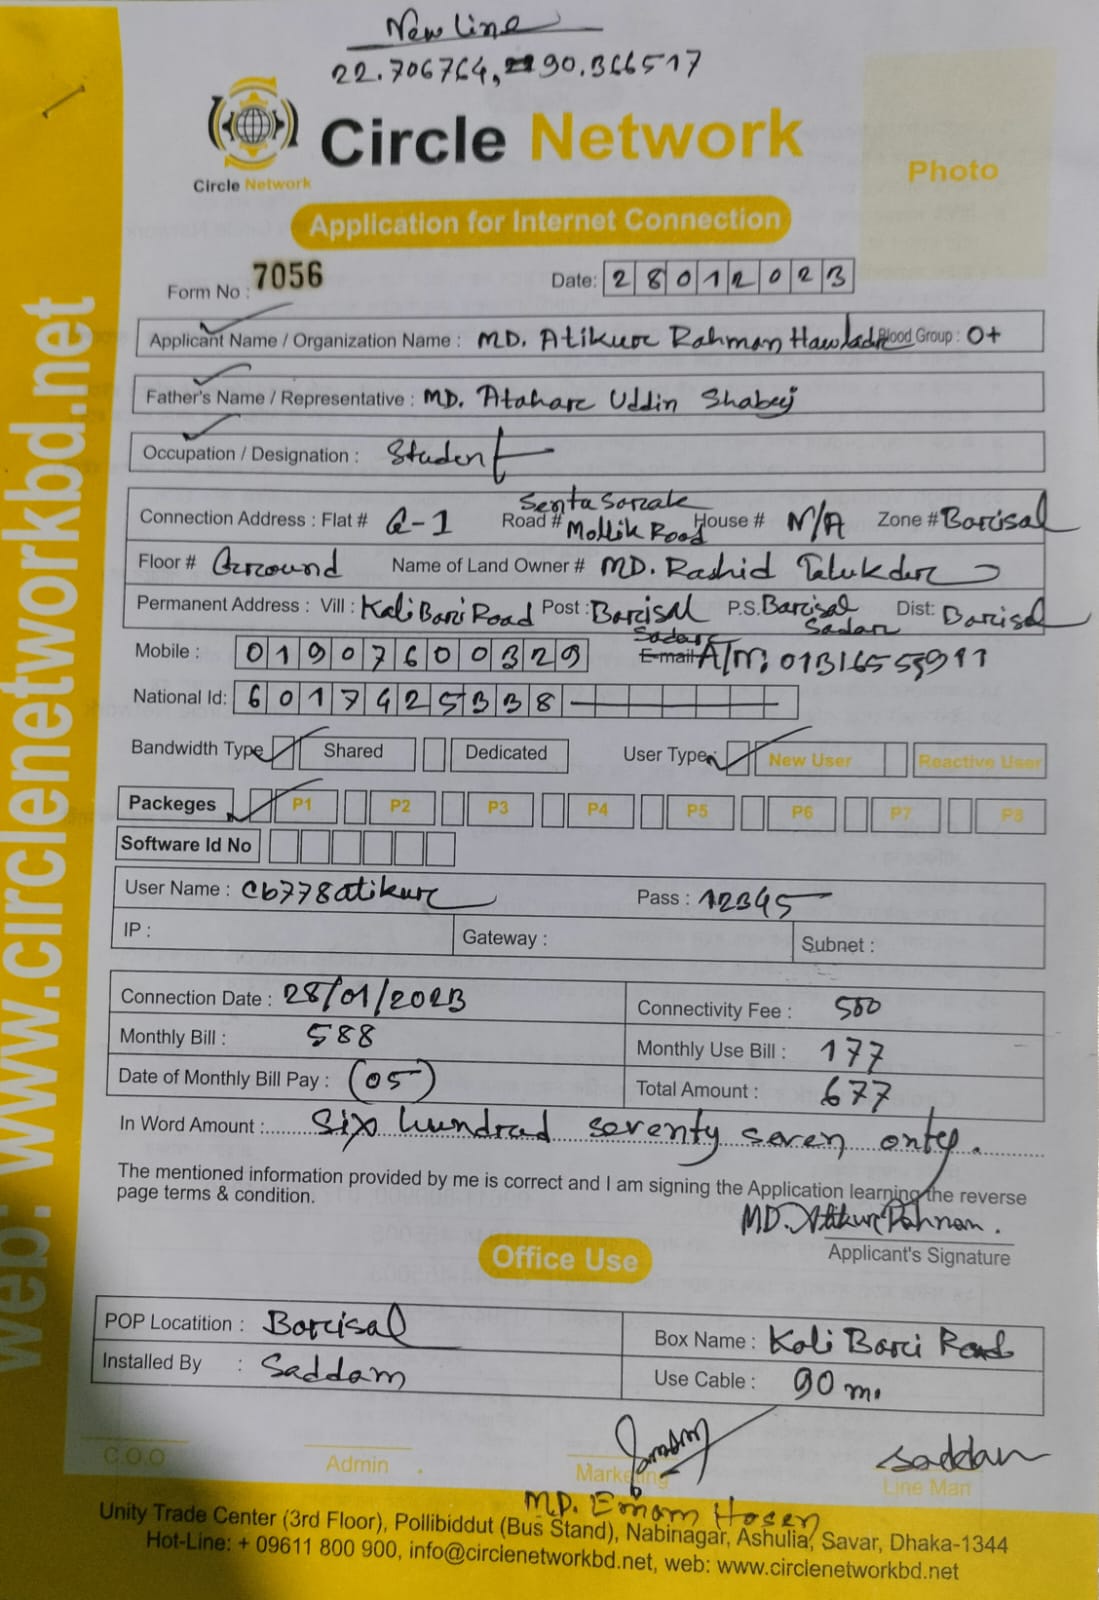 New Line
22.706764, 90.366517
Circle Network
Circle Network
Photo
Application for Internet Connection
Form No : 7056 Date: 28012023
Applicant Name / Organization Name : MD. Atikur Rahman Hawladr Blood Group : O+
Father's Name / Representative : MD. Atahar Uddin Shabuj
Occupation / Designation : Student
Connection Address : Flat # G-1 Road # Senta Sarak Mollik Road House # N/A Zone # Barisal
Floor # Ground Name of Land Owner # MD. Rashid Talukder
Permanent Address : Vill : Kali Bari Road Post : Barisal Sadar P.S. Barisal Sadar Dist: Barisal
Mobile : 01907600329 E-mail A/M: 01316559911
National Id: 6017425338
Bandwidth Type Shared Dedicated User Type: New User Reactive User
Packeges P1 P2 P3 P4 P5 P6 P7 P8
Software Id No
User Name : cb778atikur Pass : 12345
IP : Gateway : Subnet :
Connection Date : 28/01/2023 Connectivity Fee : 500
Monthly Bill : 588 Monthly Use Bill : 177
Date of Monthly Bill Pay : (05) Total Amount : 677
In Word Amount : Six hundrad seventy seven only.
The mentioned information provided by me is correct and I am signing the Application learning the reverse
page terms & condition.
MD. Atikur Rahman.
Applicant's Signature
Office Use
POP Locatition : Barisal Box Name : Kali Bari Road
Installed By : Saddam Use Cable : 90 m.
saddam
C.O.O Admin Marketing Line Man
MD. Emam Hosen
Unity Trade Center (3rd Floor), Pollibiddut (Bus Stand), Nabinagar, Ashulia, Savar, Dhaka-1344
Hot-Line: + 09611 800 900, info@circlenetworkbd.net, web: www.circlenetworkbd.net
web: www.circlenetworkbd.net